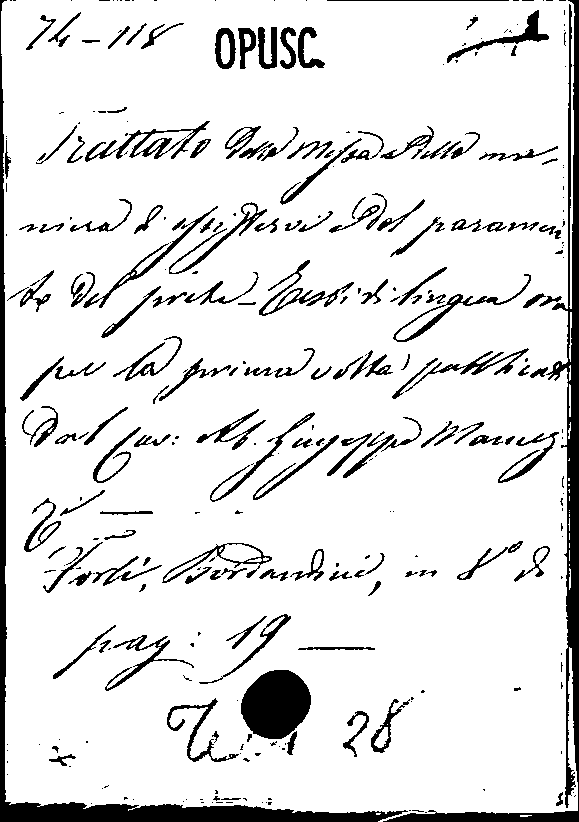 74-118 OPUSC.
Trattato della Messa e della ma-
niera di assistervi e del paramen-
to del prete - Testi di lingua ora
per la prima volta pubblicati
dal Cav: Ab. Giuseppe Manuz-
zi —
Forlì, Bordandini, in 8° di
pag: 19 —
28